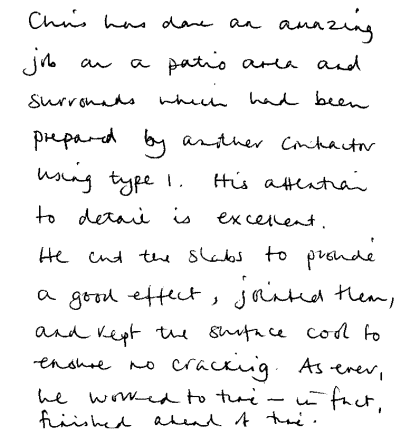 Chris has done an amazing
job on a patio area and
surrounds which had been
prepared by another contractor
using type 1. His attention
to detail is excellent.
He cut the slabs to provide
a good effect, jointed them,
and kept the surface cool to
ensure no cracking. As ever,
he worked to time - in fact,
finished ahead of time.